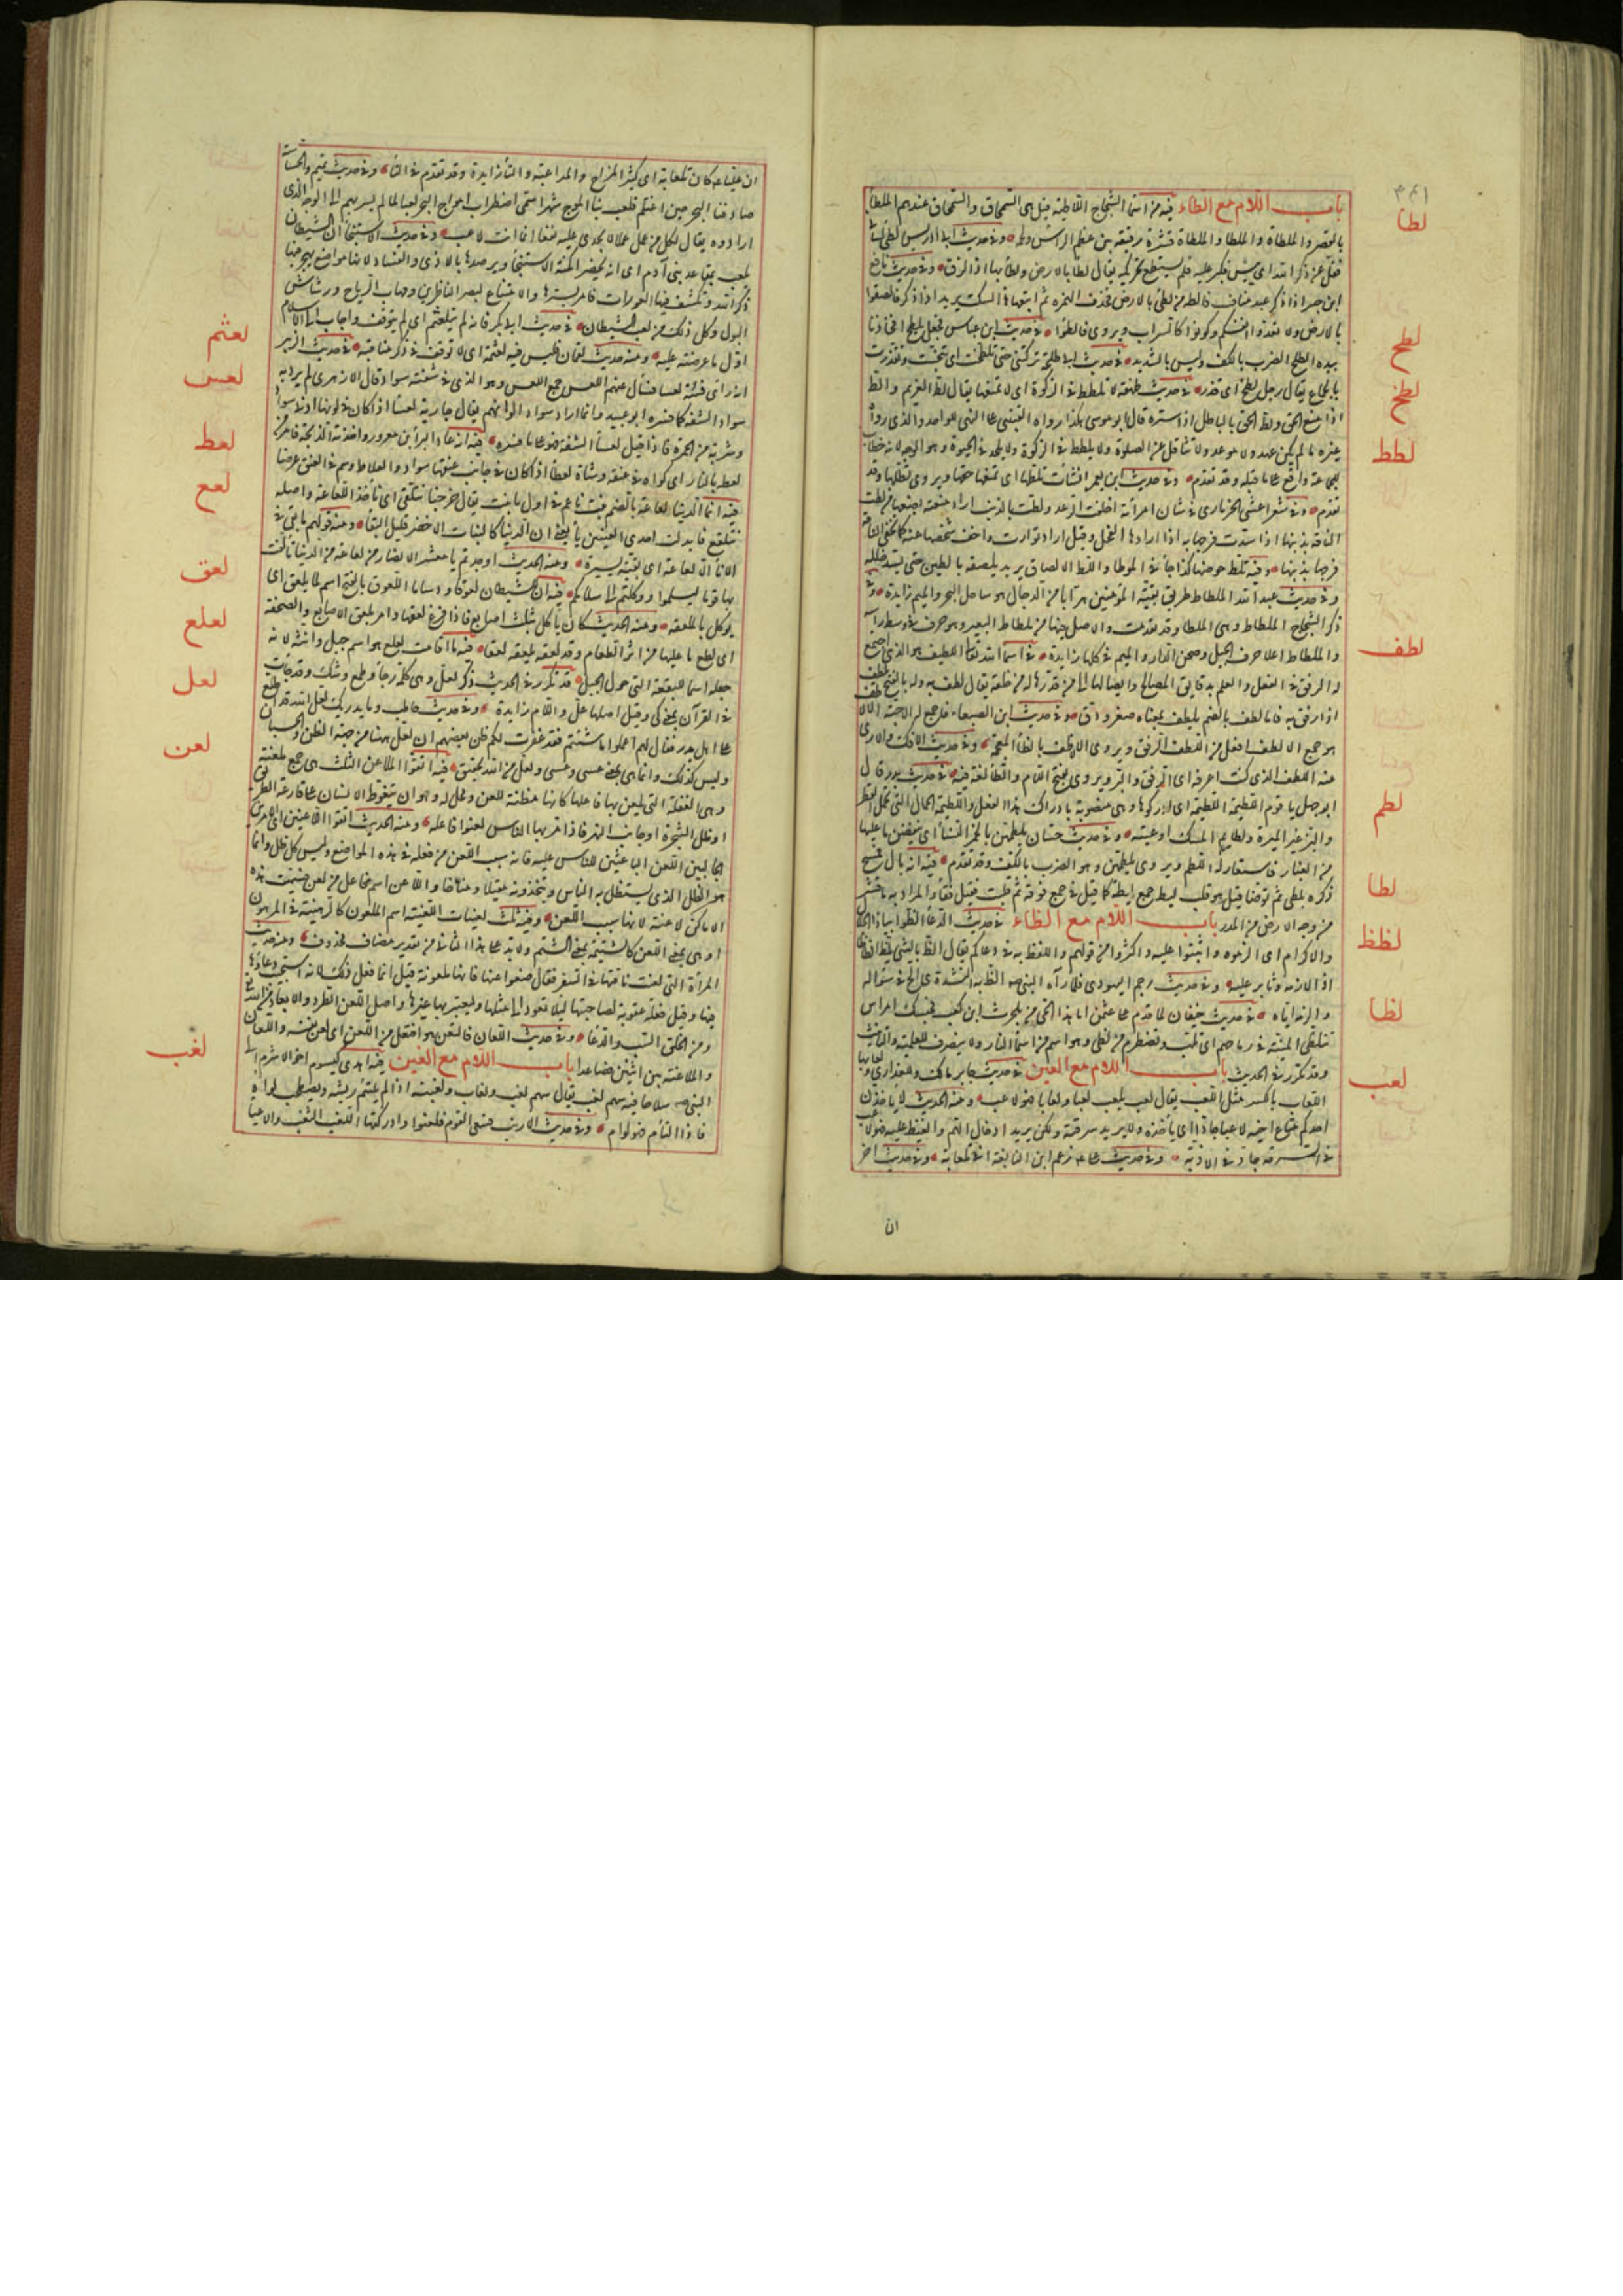 باب اللام مع الطاء فيه من اسماء الشجاج اللاطئة قيل هي السمحاق والسمحاق عندهم الملطأ
لطا
بالقصر والملطاة والملطا والملطاة قشرة رقيقة بين عظم الراس ولحمه وفي حديث ابن ادريس لطى لسا
فقل عن ذكر الله اي يبس فكبر عليه فلم يستطع تحريكه يقال لطا بالارض ولطأ بها اذا لزق وفي حديث نافع
ابن جبير اذا ذكر عبد مناف فالطه من لطئ بالارض فحذف الهمزة ثم اتبعها هاء السكت يريد اذا ذكر فالصقوا
بالارض ولا تعدوا انفسكم وكونوا كالتراب ويروى فالطئوا في حديث ابن عباس فجعل يلطح افخاذنا
لطح
بيده اللطح الضرب بالكف وليس بالشديد في حديث ابي طلحة تركتني حتى تلطخت اي تنجست وتقذرت
لطخ
بالجماع يقال رجل لطخ اي قذر في حديث طهفة لا تلطط في الزكوة اي لا تمنعها يقال لط الغريم والط
اذا منع الحق ولط الحق بالباطل اذا ستره قال ابو موسى هكذا رواه القتيبي على النهي للواحد والذي رواه
غيره ما لم يكن عهد ولا موعد ولا تثاقل عن الصلوة ولا يلطط في الزكوة ولا يلحد في الحيوة وهو الوجه لانه خطاب
لطط
للجماعة واقع على ما قبله وقد تقدم وفي حديث ابن يعمر انشات تلطها اي تمنعها حقها ويروى تطلها وقد
تقدم وفي شعر اعشى الحرمازي في شان امرأته اخلفت الوعد ولطت بالذنب اراد منعته بضعها من لطت
الناقة بذنبها اذا سدت فرجها به اذا ارادها الفحل وقيل اراد توارت واخفت شخصها عنه كما تخفي الناقة
فرجها بذنبها وفيه تلط حوضها كذا جاء في الموطا واللط الالصاق يريد يلصقه بالطين حتى يسد خلله
وفي حديث عبد الله الملطاط طريق بقية المؤمنين هرابا من الدجال هو ساحل البحر والميم زايدة وفي
ذكر الشجاج الملطاط وهي الملطا وقد تقدمت والاصل فيها من ملطاط البعير وهو حرف في وسط راسه
والملطاط اعلا حرف الجبل وصحن الدار والميم في كلها زايدة في اسماء الله تعالى اللطيف هو الذي اجتمع
لطف
له الرفق في الفعل والعلم بدقايق المصالح وايصالها الى من قدرها له من خلقه يقال لطف به وله بالفتح يلطف
اذا رفق به فاما لطف بالضم يلطف فمعناه صغر ودق وفي حديث ابن الصبغاء فاجمع له الاحبة الالا
هو جمع الالطف افعل من اللطف الرفق ويروى الاظلف بالظاء المعجمة وفي حديث الافك ولا ارى
منه اللطف الذي كنت اعرفه اي الرفق والبر ويروى بفتح اللام والطاء لغة فيه في حديث بدر قال
ابو جهل يا قوم اللطيمة اللطيمة اي ادركوها وهي منصوبة بادراك هذا الفعل واللطيمة الجمال التي تحمل العطر
لطم
والبز غير الميرة ولطايم المسك اوعيته وفي حديث حسان يلطمهن بالخمر النساء اي ينفضن ما عليها
من الغبار فاستعار له اللطم ويروى يطلمهن وهو الضرب بالكف وقد تقدم فيه انه بال فمسح
لطا
ذكره بلطى ثم توضا قيل هو قلب ليط جمع ليطة كما قيل في جمع فوقة ثم قلبت فقيل فقا والمراد به ما قشر
من وجه الارض من المدر باب اللام مع الظاء في حديث الدعاء الظوا بياذا الجلا
والاكرام اي الزموه واثبتوا عليه واكثروا من قولكم واللفظ به في دعاكم يقال الظ بالشئ يلظ الظاظا
لظظ
اذا لازمه وثابر عليه وفي حديث رجم اليهودي فلما رآه النبي صم الظ به النشدة اي الح في سؤاله
والزمه اياه في حديث خيفان لما قدم على عثمن اما هذا الحي من بلحرث ابن كعب فحسك امراس
لظا
تتلظى المنية في رماحهم اي تلتهب وتضطرم من لظى وهو اسم من اسماء النار ولا ينصرف للعلمية والتانيث
وقد تكرر في الحديث باب اللام مع العين في حديث جابر مالك وللعذارى ولعابها
لعب
اللعاب بالكسر مثل اللعب يقال لعب يلعب لعبا ولعابا فهو لاعب ومنه الحديث لا ياخذن
احدكم متاع اخيه لاعبا جادا اي ياخذه ولا يريد سرقته ولكن يريد ادخال الهم والغيظ عليه فهو لاعب
في السرقة جاد في الاذية وفي حديث علي زعم ابن النابغة اني تلعابة وفي حديث اخر
ان
ان عليا كان تلعابة اي كثير المزاح والمداعبة والتاء زايدة وقد تقدم في التاء وفي حديث تميم والجساسة
صادفنا البحر حين اغتلم فلعب بنا الموج شهرا سمى اضطراب امواج البحر لعبا لما لم يسر بهم الى الوجه الذي
ارادوه يقال لكل من عمل عملا لا يجدي عليه نفعا انما انت لاعب وفي حديث الاستنجاء ان الشيطان
يلعب بمقاعد بني آدم اي انه يحضر امكنة الاستنجاء ويرصدها بالاذى والفساد لانها مواضع يهجر فيها
ذكر الله وتكشف فيها العورات فامر بسترها والامتناع لبصر الناظرين ومهاب الرياح ورشاش
البول وكل ذلك من لعب الشيطان في حديث ابي بكر فانه لم يتلعثم اي لم يتوقف واجاب الى الاسلام
لعثم
اول ما عرضته عليه ومنه حديث لقمان فليس فيه لعثمة اي لا توقف في ذكر مناقبه في حديث الزبير
انه راى فتية لعسا فسال عنهم اللعس جمع العس وهو الذي في شفته سواد قال الازهري لم يرد به
لعس
سواد الشفة كما فسره ابو عبيد وانما اراد سواد الوانهم يقال جارية لعساء اذا كان في لونها ادنى سواد
وشربة من الحمرة فاذا قيل لعساء الشفة فهو على ما فسره فيه انه عاد البراء بن معرور واخذته الذبحة فامر من
لعط
لعطه بالنار اي كواه في عنقه وشاة لعطاء اذا كان في جانب عنقها سواد والعلاط وسم في العنق عرضا
فيه انما الدنيا لعاعة اللعاعة بالضم نبت ناعم في اول ما ينبت يقال خرجنا نتلعى اي ناخذ اللعاعة واصله
لعع
نتلعع فابدلت احدى العينين ياء يعني ان الدنيا كالنبات الاخضر قليل البقاء ومنه قولهم ما بقي في
الاناء الا لعاعة اي بقية يسيرة ومنه الحديث اوجدتم يا معشر الانصار من لعاعة من الدنيا تالفت
بها قوما ليسلموا ووكلتم الى اسلامكم فيه ان للشيطان لعوقا ودساما اللعوق بالفتح اسم لما يلعق اي
لعق
يوكل بالملعقة ومنه الحديث كان ياكل بثلث اصابع فاذا فرغ لعقها وامر بلعق الاصابع والصحفة
اي لطع ما عليها من اثر الطعام وقد لعقه يلعقه لعقا فيه ما اقامت لعلع هو اسم جبل وانثه لانه
لعلع
جعله اسما للبقعة التي حول الجبل قد تكرر في الحديث ذكر لعل وهي كلمة رجاء وطمع وشك وقد جاءت
لعل
في القرآن بمعنى كي وقيل اصلها عل واللام زايدة وفي حديث حاطب وما يدريك لعل الله قد اطلع
على اهل بدر فقال لهم اعملوا ما شئتم فقد غفرت لكم ظن بعضهم ان لعل ههنا من جهة الظن والحسبان
وليس كذلك وانما هي بمعنى عسى وعسى ولعل من الله تحقيق فيه اتقوا الملاعن الثلث هي جمع ملعنة
لعن
وهي الفعلة التي يلعن بها فاعلها كانها مظنة للعن ومحل له وهو ان يتغوط الانسان على قارعة الطريق
او ظل الشجرة او جانب النهر فاذا مر بها الناس لعنوا فاعله ومنه الحديث اتقوا اللاعنين اي الامرين
الجالبين اللعن الباعثين للناس عليه فانه سبب اللعن من فعله في هذه المواضع وليس كل ظل وانما
هو الظل الذي يستظل به الناس ويتخذونه مقيلا ومناخا واللاعن اسم فاعل من لعن فسميت هذه
الاماكن لاعنة لانها سبب اللعن وفيه ثلث لعينات اللعينة اسم الملعون كالرهينة في المرهون
او هي بمعنى اللعن كالشتيمة بمعنى الشتم ولا بد على هذا الثاني من تقدير مضاف محذوف ومنه حديث
المرأة التي لعنت ناقتها في السفر فقال ضعوا عنها فانها ملعونة قيل انما فعل ذلك لانه استجيب دعاؤها
فيها وقيل فعله عقوبة لصاحبتها ليلا تعود الى مثلها وليعتبر بها غيرها واصل اللعن الطرد والابعاد من الله
ومن الخلق السب والدعاء وفي حديث اللعان فالتعن هو افتعل من اللعن اي لعن نفسه واللعان
والملاعنة بين اثنين فصاعدا باب اللام مع الغين فيه اهدى يكسوم اخو الاشرم الى
لغب
النبي صم سلاحا فيه سهم لغب يقال سهم لغب ولغاب ولغيب اذا لم يلتئم ريشه ويصطحب لرداءته
فاذا التأم فهو لوام وفي حديث الارنب فسعى القوم فلغبوا وادركتها اللغب التعب والاعياء